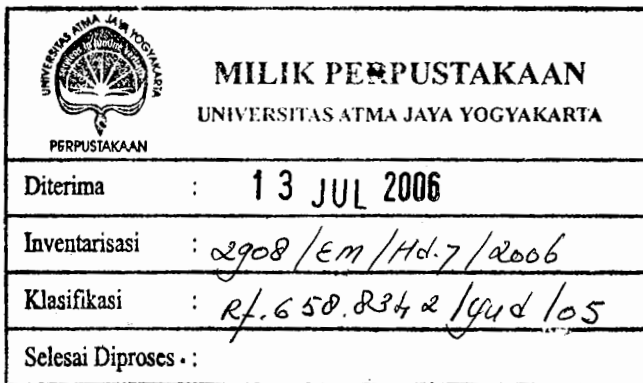 UNIVERSITAS ATMA JAYA YOGYAKARTA
PERPUSTAKAAN
MILIK PERPUSTAKAAN
UNIVERSITAS ATMA JAYA YOGYAKARTA
Diterima : 13 JUL 2006
Inventarisasi : 2908/EM/Hd.7/2006
Klasifikasi : Rf.658.8342/Yud/05
Selesai Diproses :